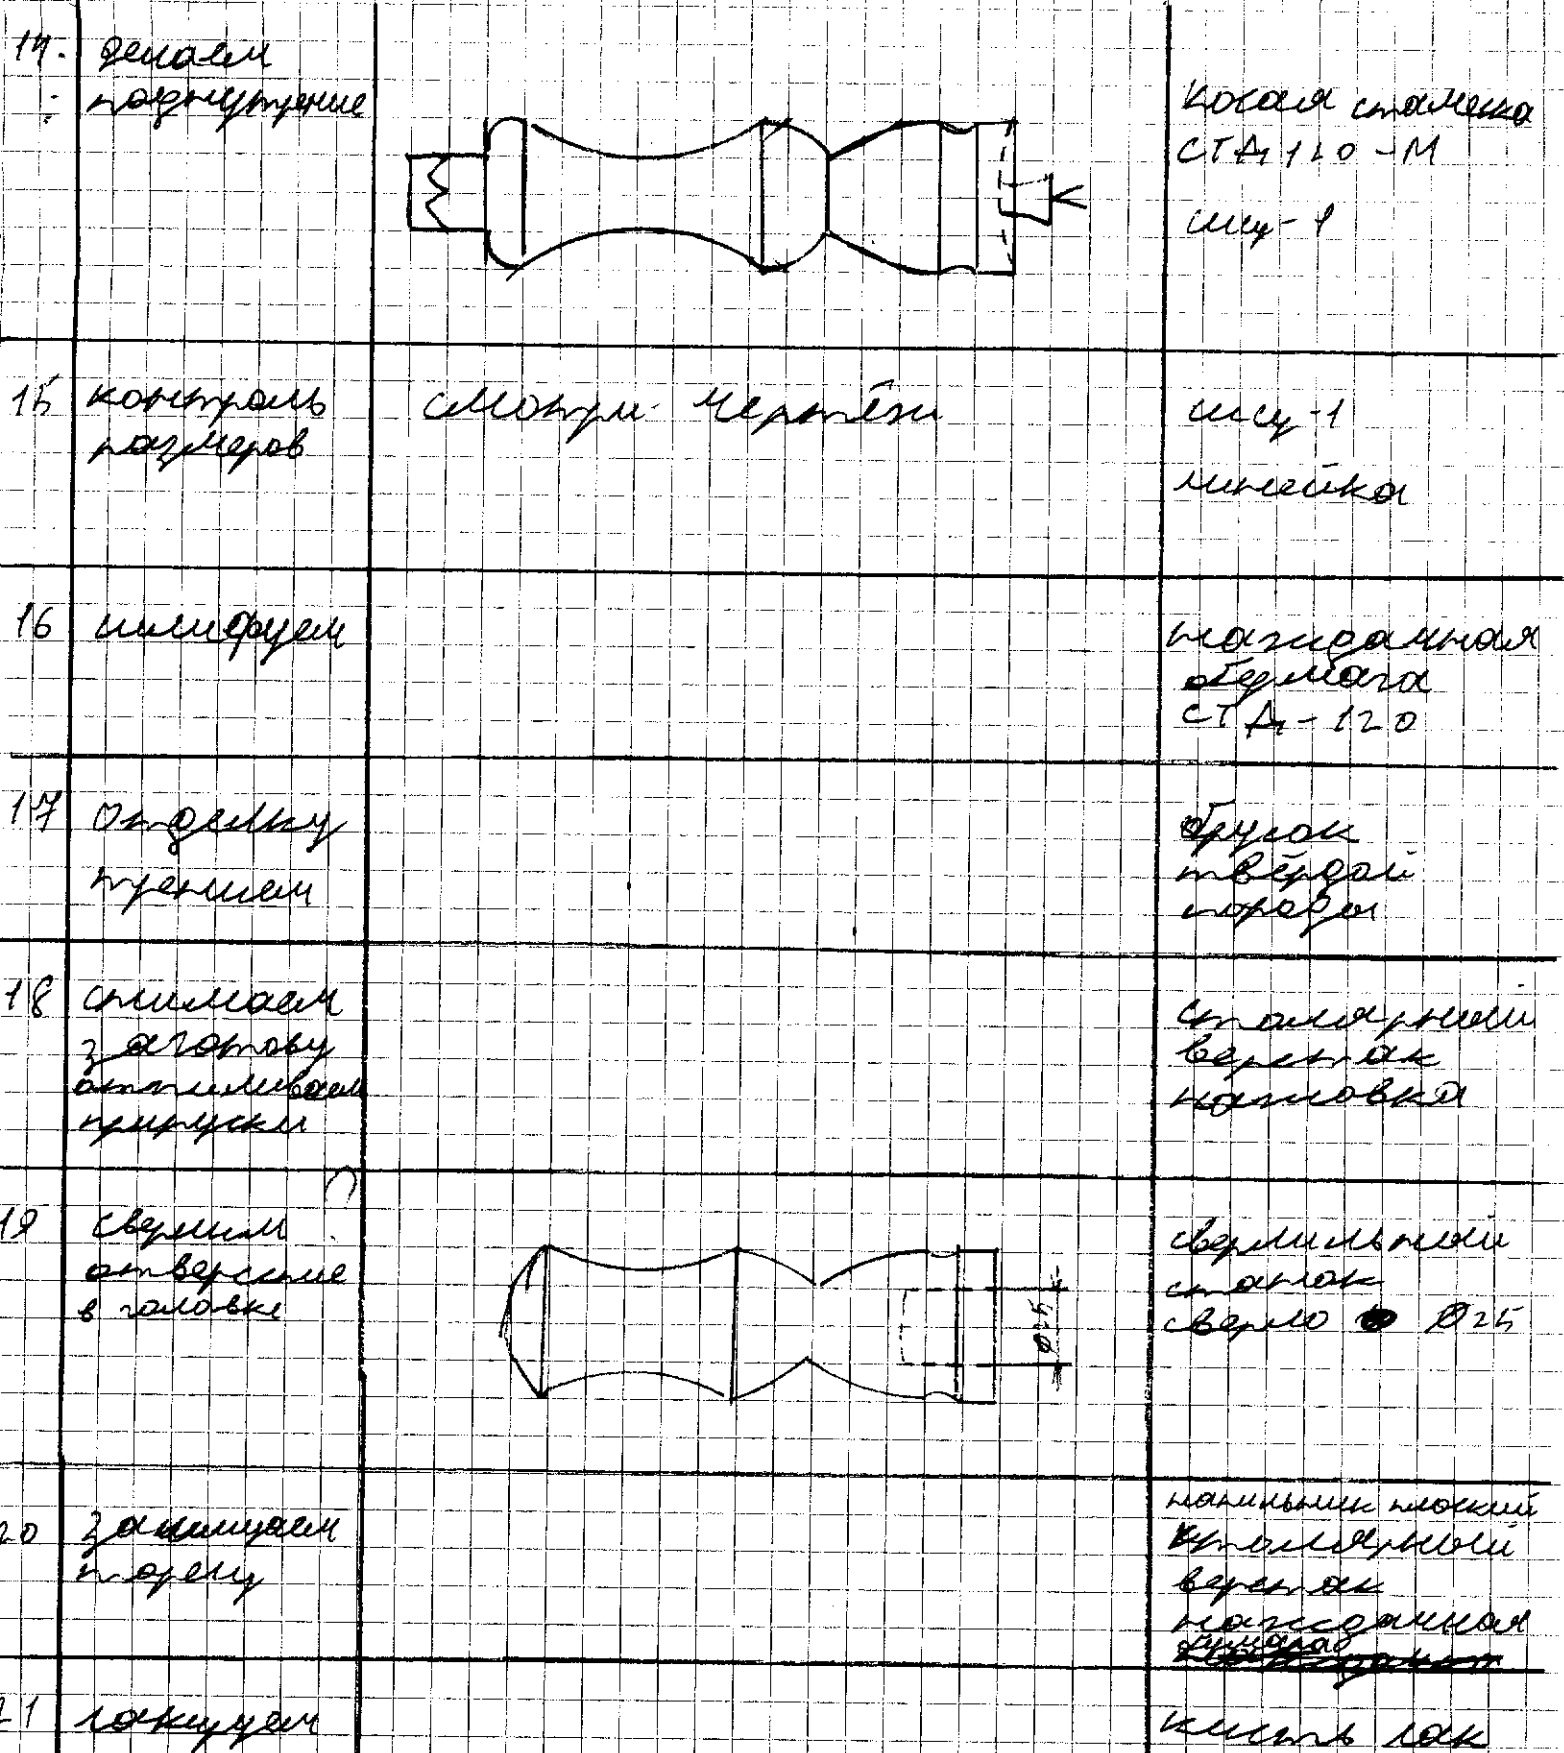 14. делаем
поднутрение
косая стамеска
СТД 120-М
шц-1
15 контроль
размеров
смотри чертёж
шц-1
линейка
16 шлифуем
наждачная
бумага
СТД-120
17 отделку
трением
брусок
твёрдой
породы
18 снимаем
заготовку
отпиливаем
припуски
столярный
верстак
ножовка
19 сверлим
отверстие
в головке
сверлильный
станок
сверло ⌀25
20 зачищаем
торец
напильник плоский
столярный
верстак
наждачная
бумага
21 лакируем
кисть лак